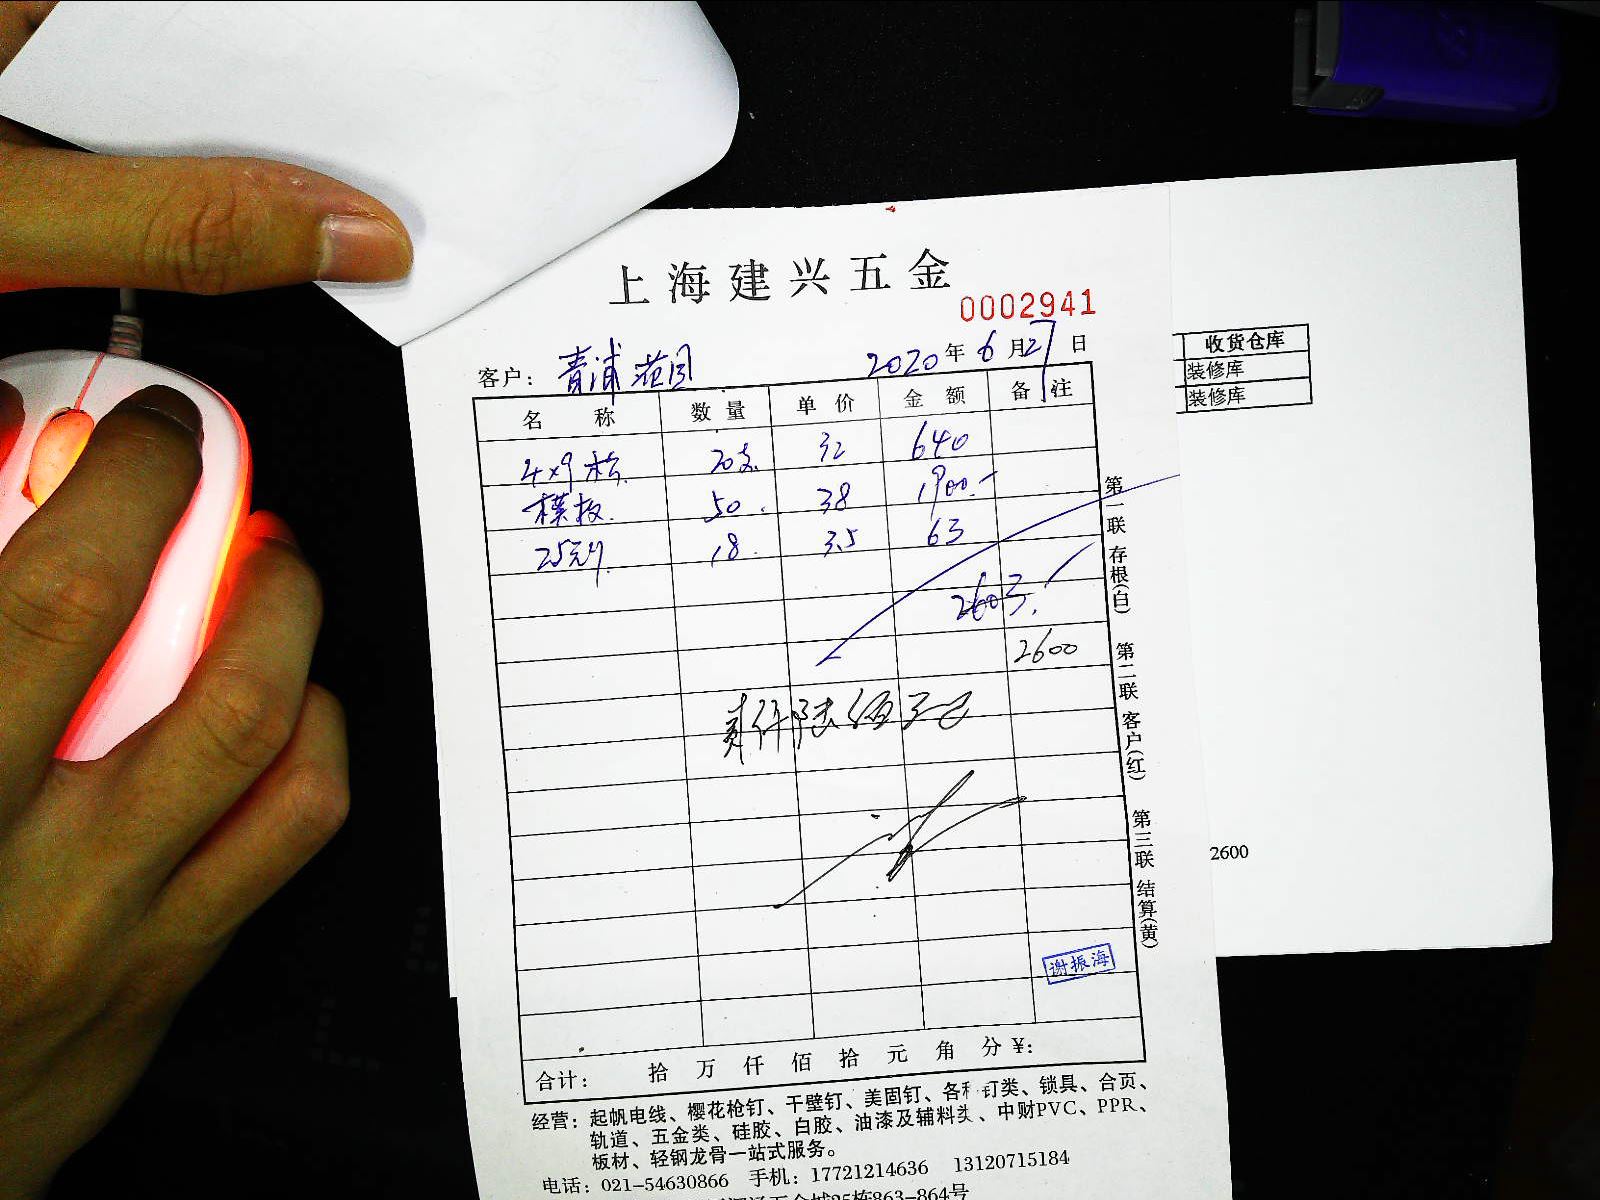 上海建兴五金
0002941
客户：青浦范围 2020年6月27日
名称 数量 单价 金额 备注
4×9 20支 32 640
模板 50. 38 1900.-
25元钉 18. 3.5 63
2603.
2600
贰仟陆佰元
谢振海
合计： 拾 万 仟 佰 拾 元 角 分 ¥：
经营：起帆电线、樱花枪钉、干壁钉、美固钉、各种钉类、锁具、合页、
轨道、五金类、硅胶、白胶、油漆及辅料类、中财PVC、PPR、
板材、轻钢龙骨一站式服务。
电话：021-54630866 手机：17721214636 13120715184
五金城25栋863-864号
第一联 存根(白) 第二联 客户(红) 第三联 结算(黄)
收货仓库
装修库
装修库
2600